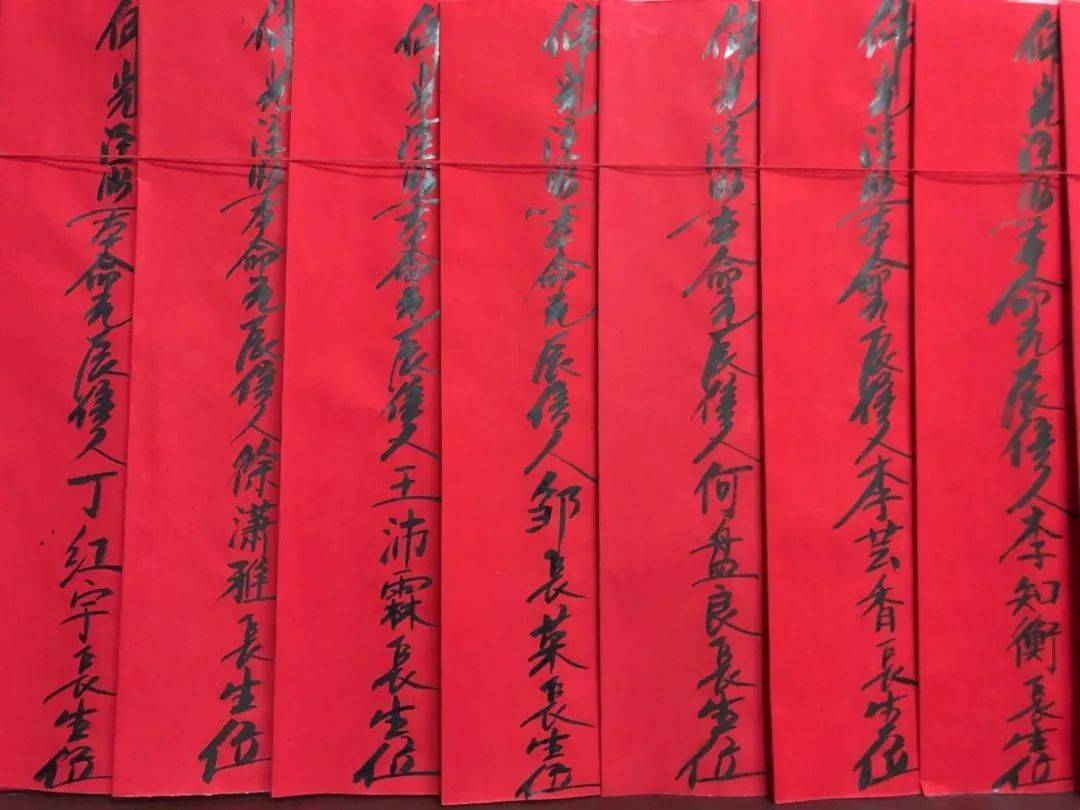 佛光注照本命元辰信人李知衡長生位
佛光注照本命元辰信人李芸香長生位
佛光注照本命元辰信人何盘良長生位
佛光注照本命元辰信人邹長長生位
佛光注照本命元辰信人王沛霖長生位
佛光注照本命元辰信人徐潇雅長生位
佛光注照本命元辰信人丁红宇長生位